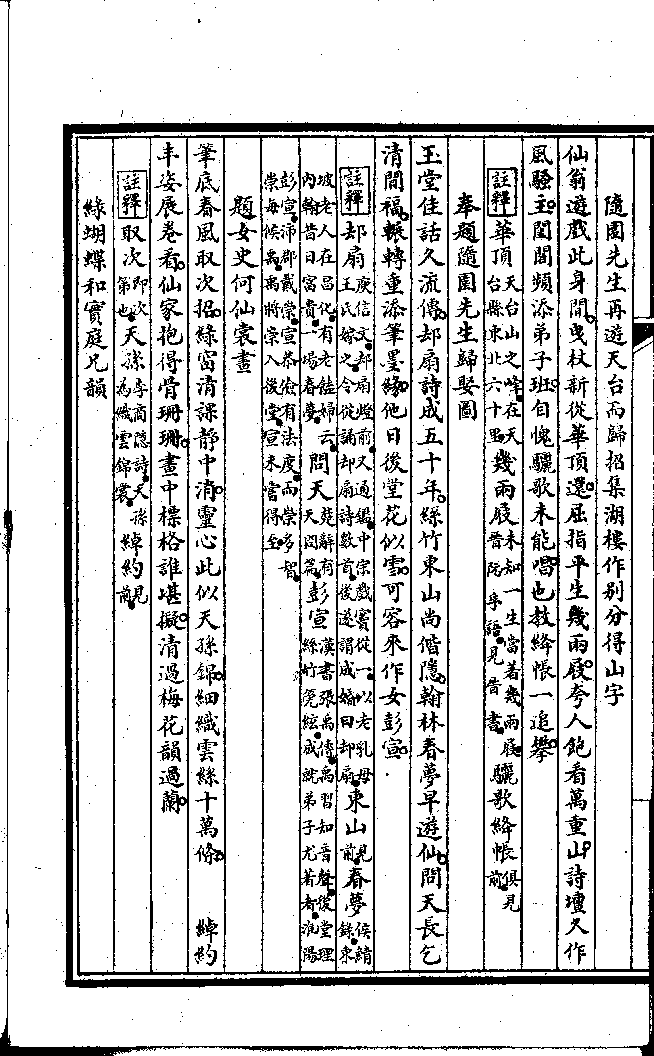 隨園先生再遊天台而歸招集湖樓作别分得山字
仙翁遊戲此身閒曳杖新從華頂還屈指平生幾兩屐夸人飽看萬重山詩壇久作
風騷主閨閣頻添弟子班自愧驪歌未能唱也教絳帳一追攀
註釋 華頂天台山之峰在天台縣東北六十里幾兩屐未知一生當著幾兩屐晉阮孚語見晉書驪歌絳帳俱見前
奉題隨園先生歸娶圖
玉堂佳話久流傳却扇詩成五十年絲竹東山尚偕隱翰林春夢早遊仙問天長乞
清閒福輾轉重添筆墨緣他日後堂花似雪可容來作女彭宣
註釋 却扇庾信文却扇燈前又通鑑中宗戲竇從一以老乳母王氏嫁之令從誦却扇詩數首後遂謂成婚曰却扇東山見前春夢侯鯖錄東
坡老人在昌化有老饁婦云内翰昔日富貴一場春夢問天楚辭有天問篇彭宣漢書張禹傳禹習知音聲後堂理絲竹筦絃成就弟子尤著者淮陽
彭宣沛郡戴崇宣恭儉有法度而崇多智崇每候禹禹將崇入後堂宣未嘗得至
題女史何仙裳畫
筆底春風取次招綠窗清課靜中消靈心此似天孫錦細織雲絲十萬條 綽約
丰姿展卷看仙家抱得骨珊珊畫中標格誰堪擬清過梅花韻過蘭
註釋 取次即次第也天孫李商隱詩天孫為織雲錦裳綽約見前
綠蝴蝶和寶庭兄韻